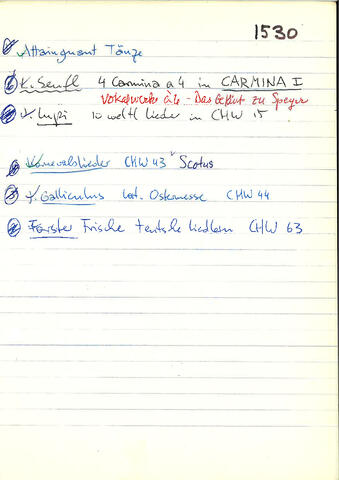 1530
Attaingnant Tänze
K. Senfl 4 Carmina a 4 in CARMINA I
Vokalwerke à 6 - Das Geläut zu Speyer
Lupi 10 weltl. Lieder in CHW 15
Karnevalslieder CHW 43 Scotus
Y. Galliculus lat. Ostermesse CHW 44
Forster Frische teutsche Liedlein CHW 63